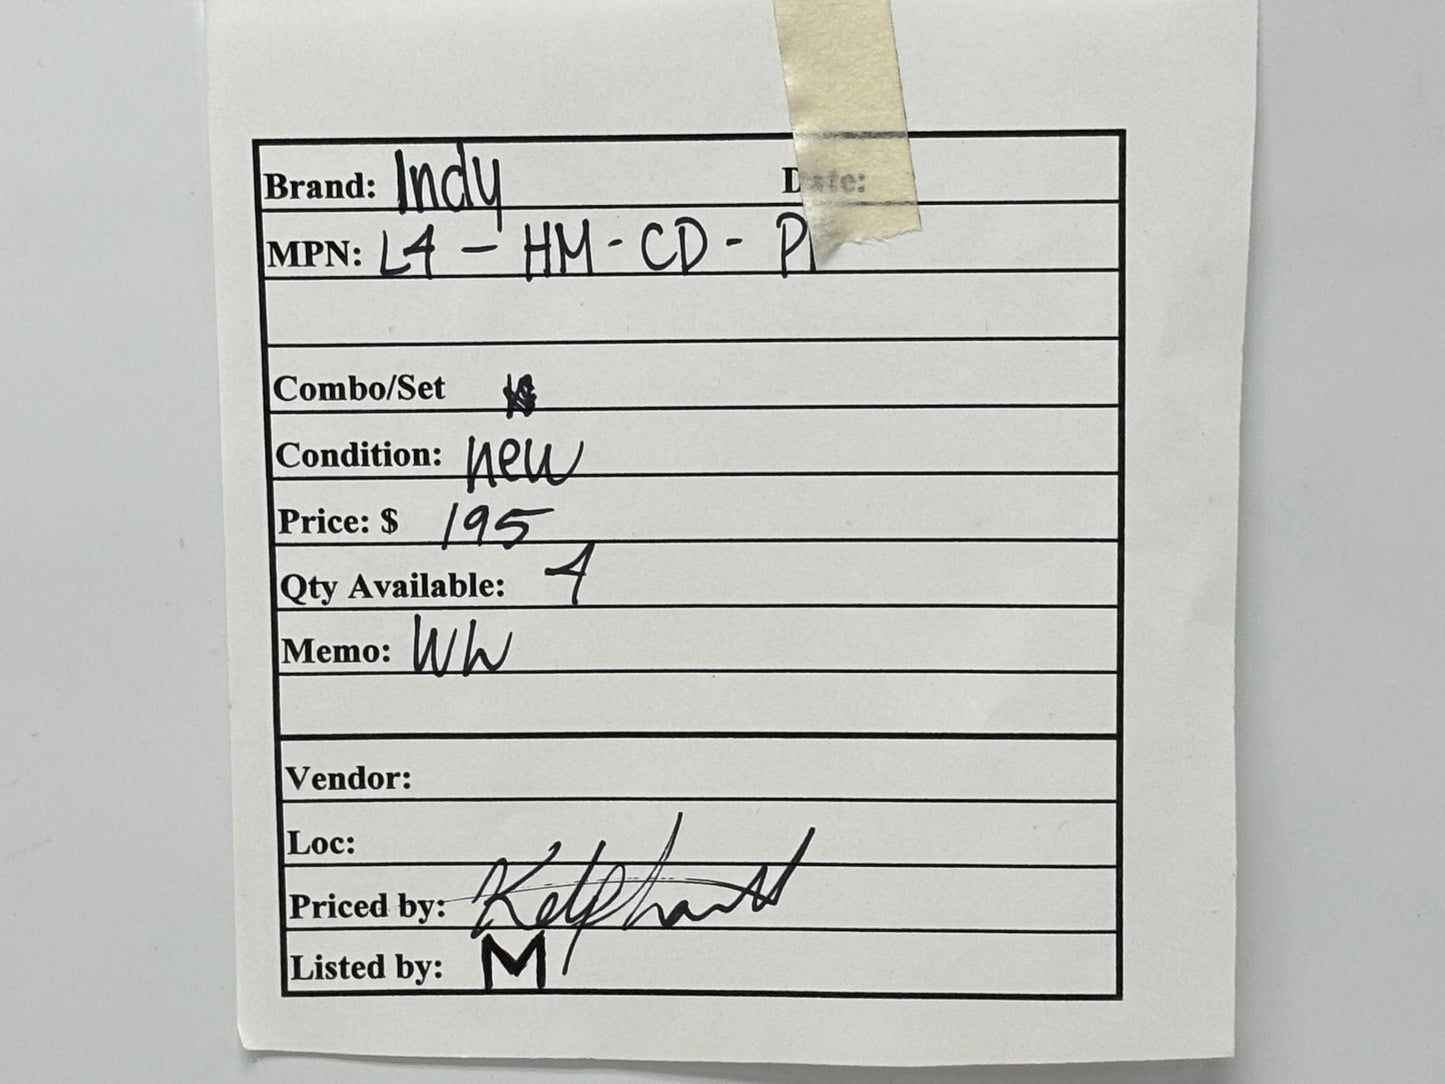 Brand: Indy Date:
MPN: L4 - HM - CD - P
Combo/Set
Condition: new
Price: $ 195
Qty Available: 4
Memo: WW
Vendor:
Loc:
Priced by:
Listed by: M